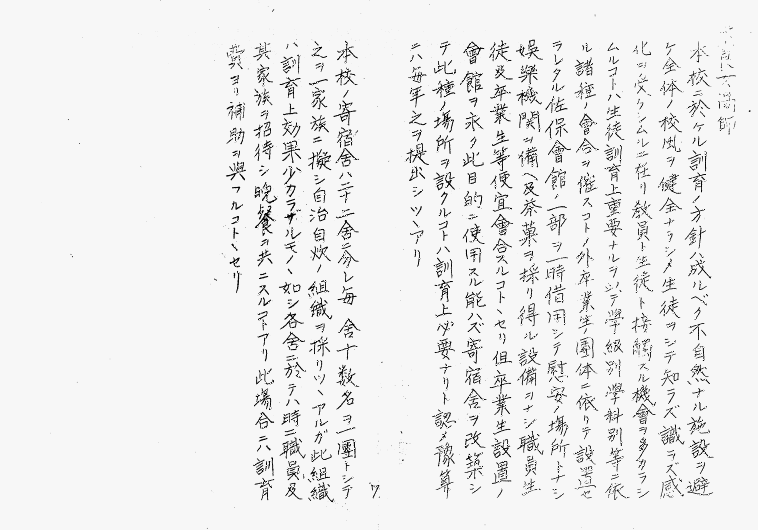 本校ニ於ケル訓育ノ方針ハ成ルベク不自然ナル施設ヲ避
ケ全体ノ校風ヲ健全ナラシメ生徒ヲシテ知ラズ識ラズ感
化ヲ受ケシムルニ在リ教員ト生徒ト接觸スル機會ヲ多カラシ
ムルコトハ生徒訓育上重要ナルヲ以テ學級別學科別等ニ依
ル諸種ノ會合ヲ催スコトノ外卒業生ノ團体ニ依リテ設置セ
ラレタル佐保會館ノ一部ヲ一時借用シテ慰安ノ場所トナシ
娯樂機関ヲ備ヘ及茶菓ヲ採リ得ル設備ヲナシ職員生
徒及卒業生等便宜會合スルコトヽセリ但卒業生設置ノ
會館ヲ永ク此目的ニ使用スル能ハズ寄宿舎ヲ改築シ
テ此種ノ場所ヲ設クルコトハ訓育上必要ナリト認メ豫算
ニハ毎年之ヲ提出シツヽアリ
本校ノ寄宿舎ハ二十二舎ニ分レ毎舎十数名ヲ一團トシテ
之ヲ一家族ニ擬シ自治自炊ノ組織ヲ採リツヽアルガ此組織
ハ訓育上効果少カラザルモノヽ如シ各舎ニ於テハ時ニ職員及
其家族ヲ招待シ晩餐ヲ共ニスルコトアリ此場合ニハ訓育
費ヨリ補助ヲ與フルコトヽセリ